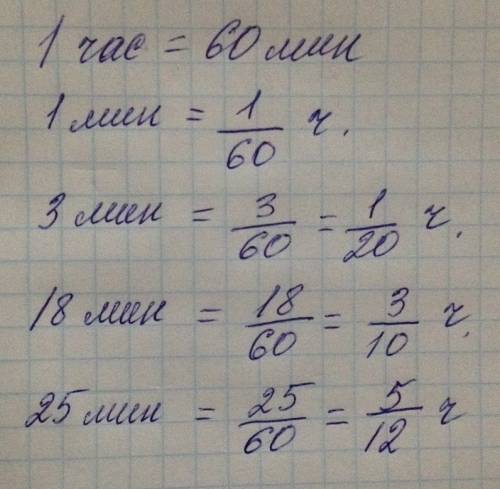 1 час = 60 мин
1 мин = 1/60 ч.
3 мин = 3/60 = 1/20 ч.
18 мин = 18/60 = 3/10 ч.
25 мин = 25/60 = 5/12 ч